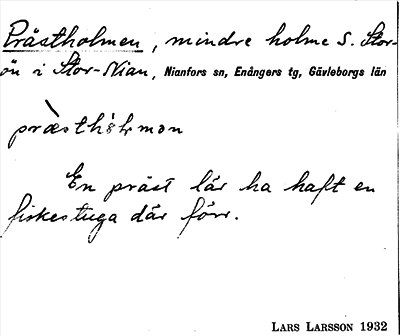 Prästholmen, mindre holme S. Stor-
ön i Stor-Nian, Nianfors sn, Enångers tg, Gävleborgs län
En präst lär ha haft en
fiskestuga där förr.
LARS LARSSON 1932